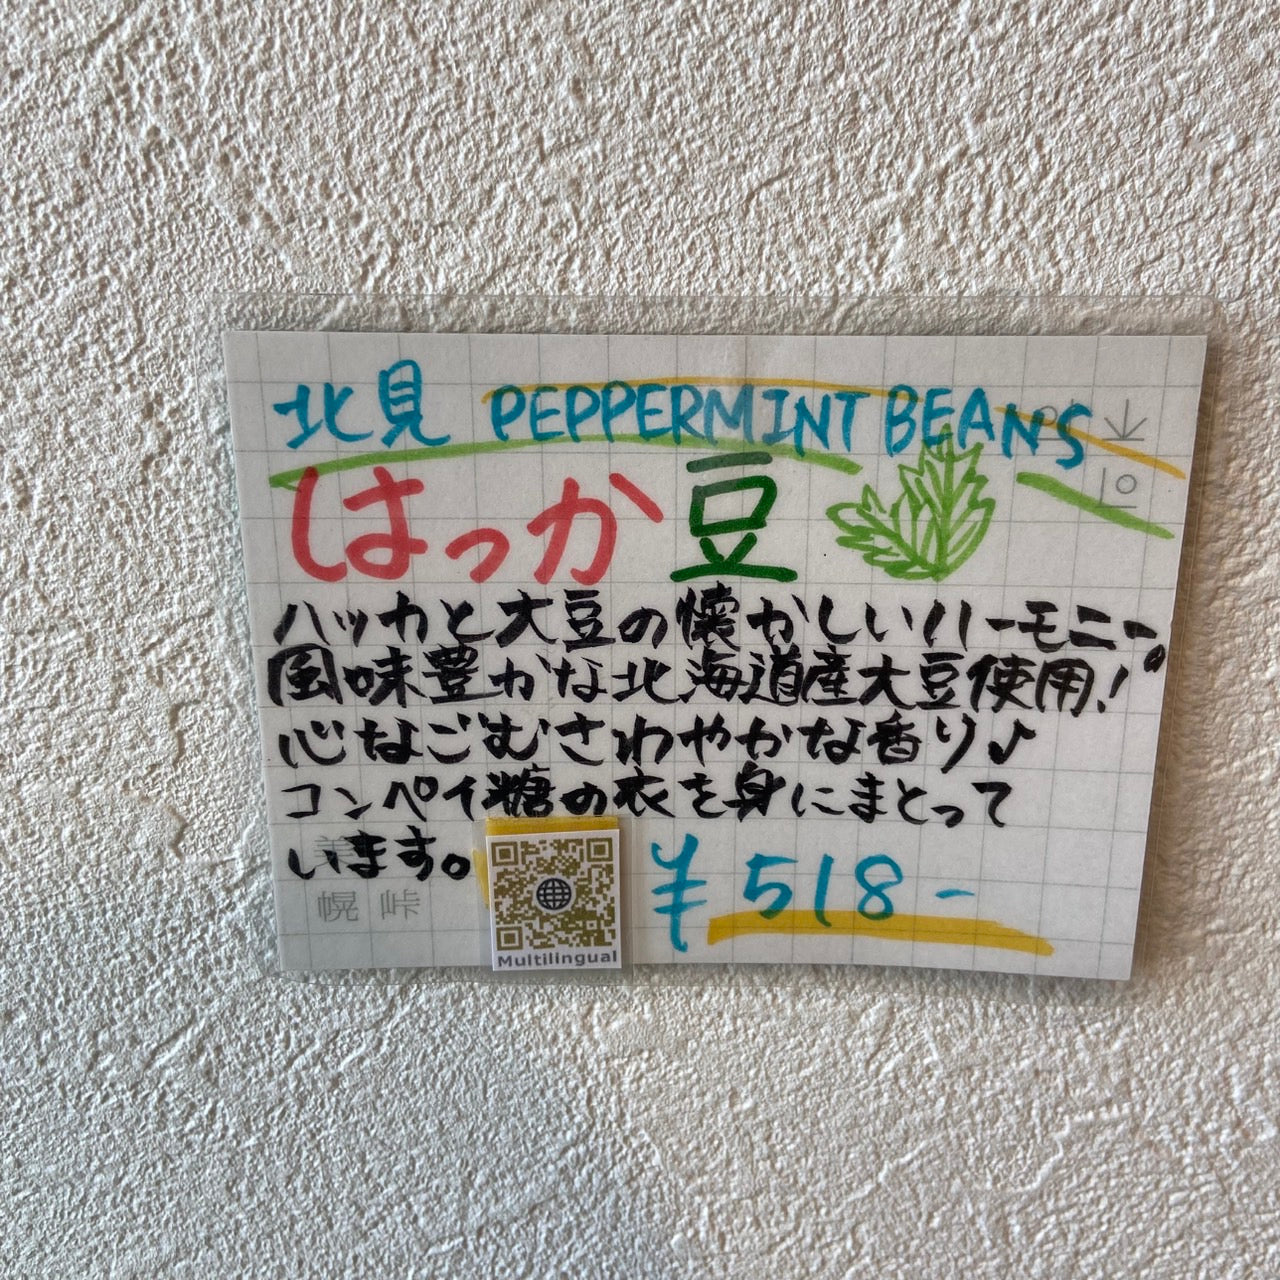 北見 PEPPERMINT BEANS
はっか豆
ハッカと大豆の懐かしいハーモニー。
風味豊かな北海道産大豆使用!
心なごむさわやかな香り♪
コンペイ糖の衣を身にまとって
います。
¥518-
美
幌 峠
Multilingual